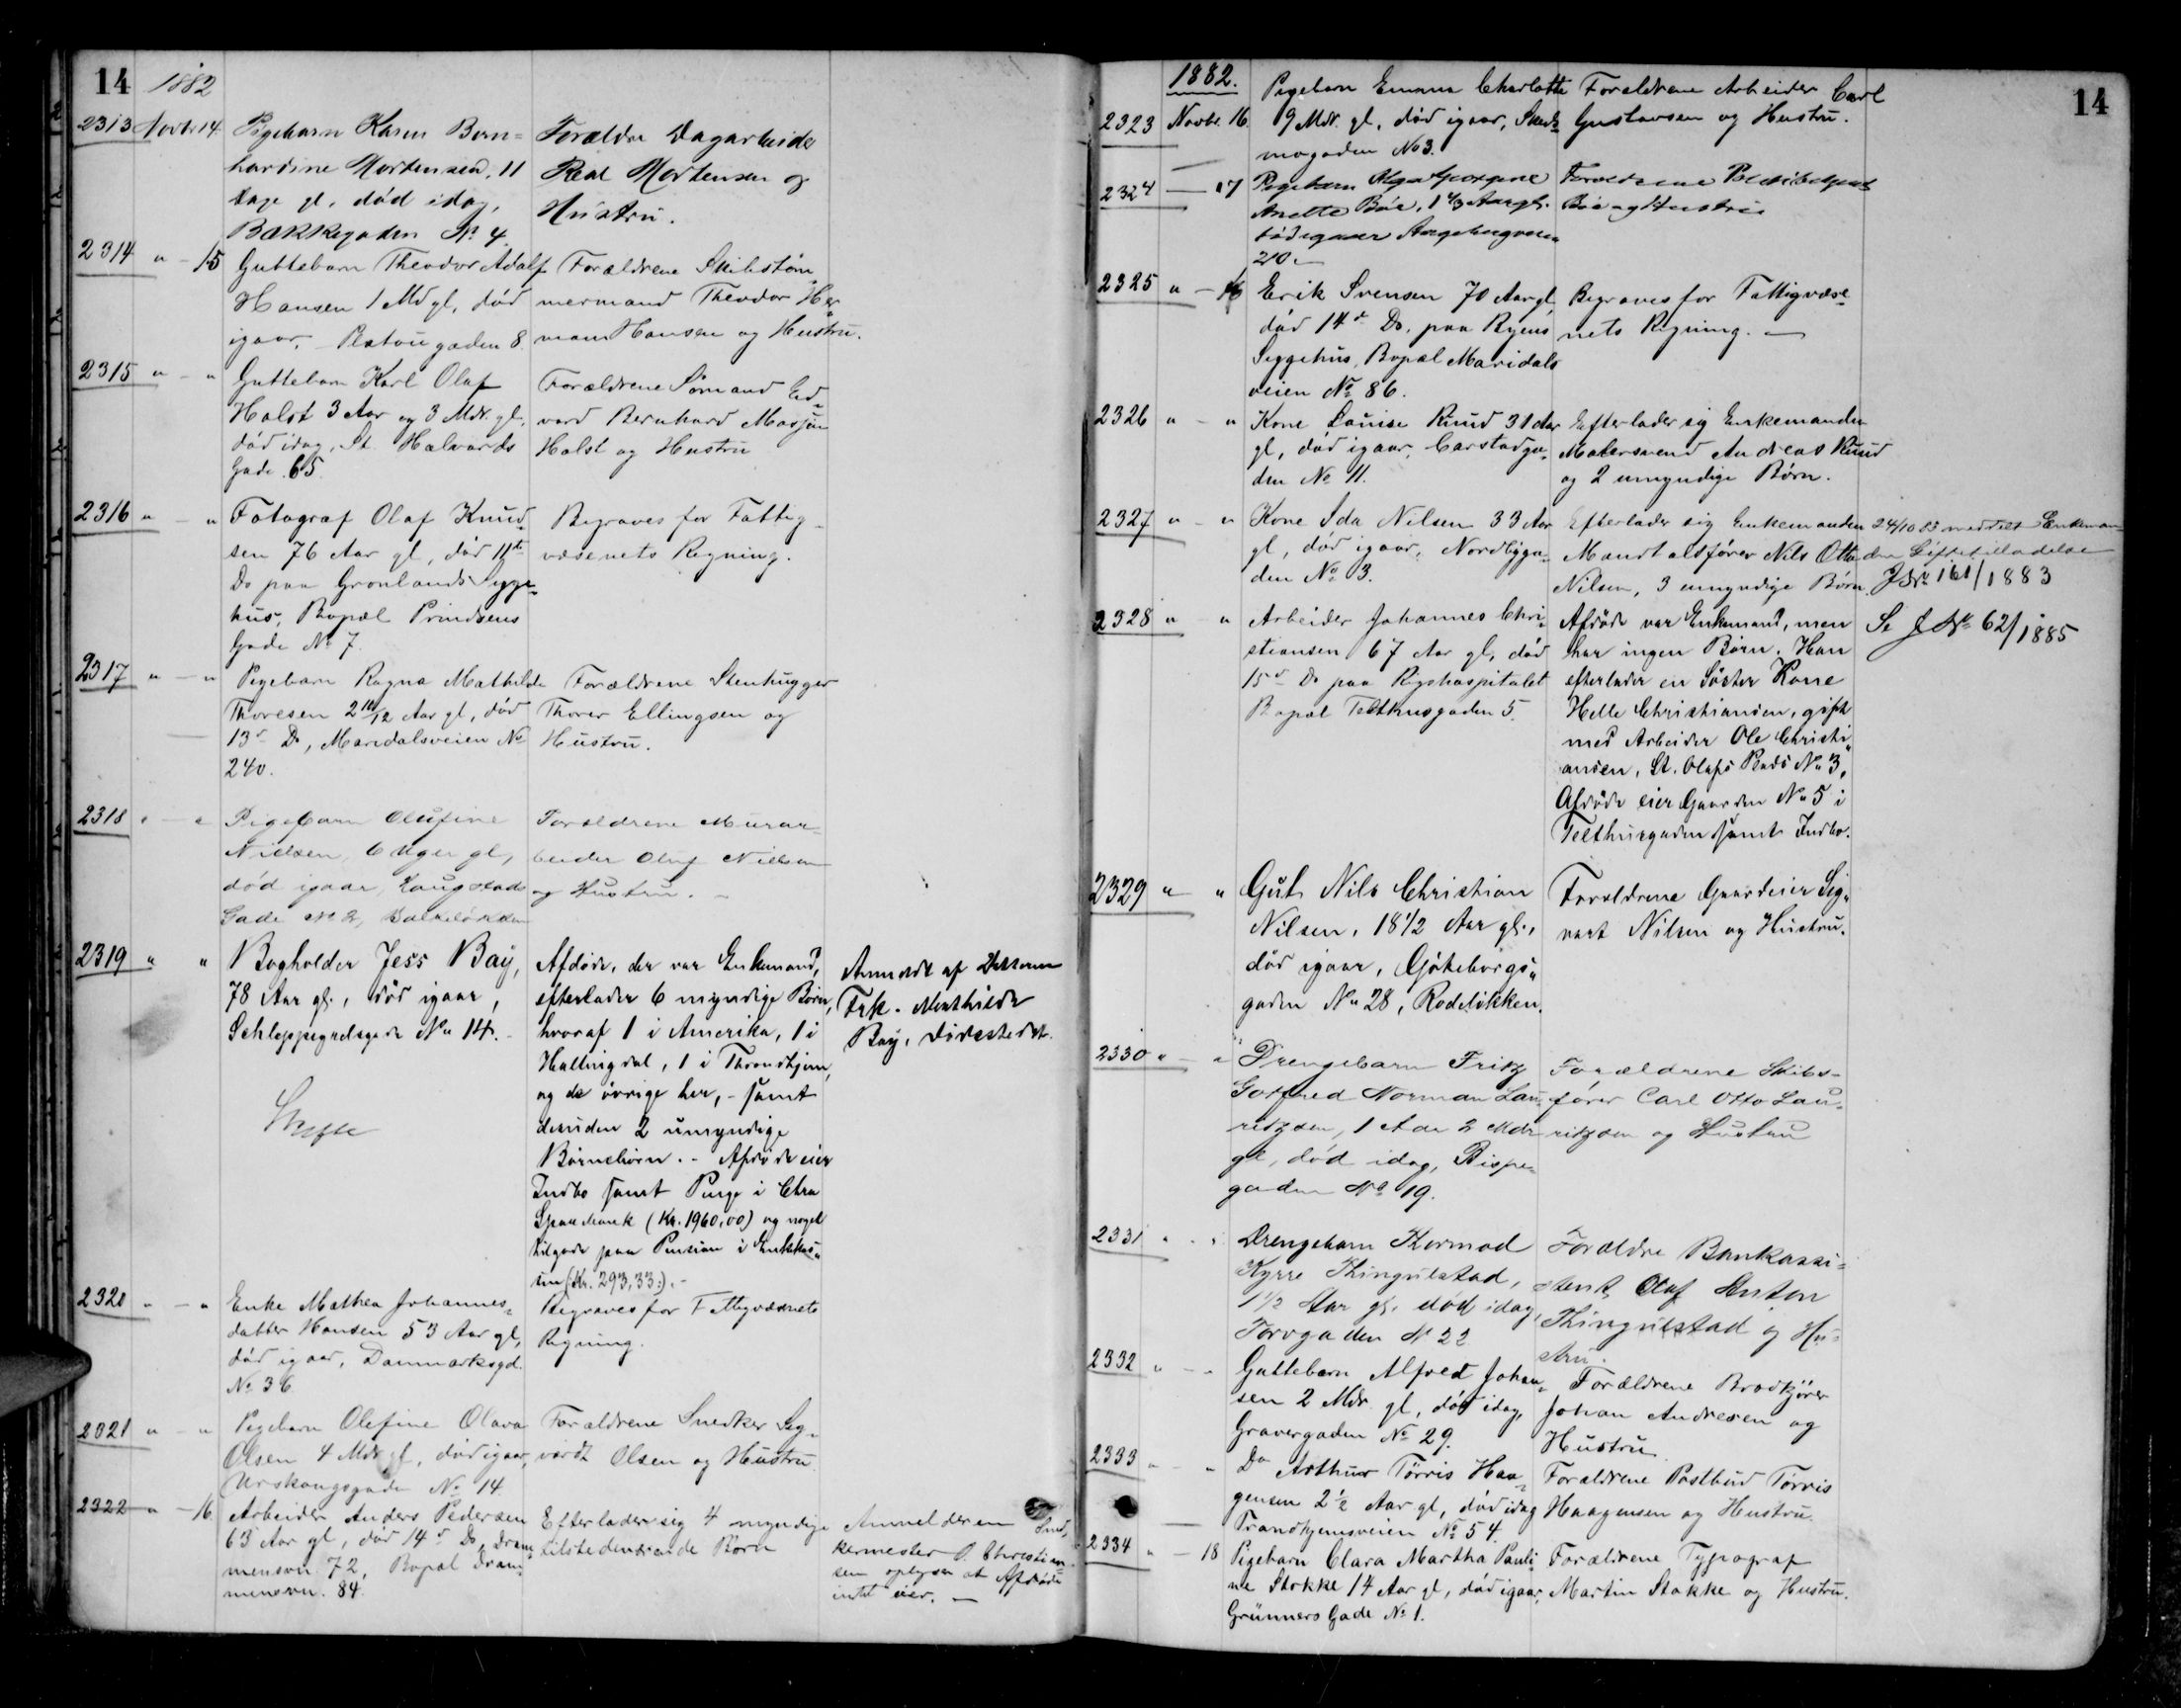 14 1882
2313 Novbr 14 Pigebarn Karen Bern=
hardine Mortensen, 11
dage gl, død idag,
Bakkegaden No 4
Forældre Dagarbeider
Peal Mortensen og
Hustru.
2314 " - 15 Guttebarn Theodor Adolf
Hansen 1 Md gl, død
igaar, - Platougaden 8.
Forældrene Skibstøm-
mermand Theodor Her-
man Hansen og Hustru.
2315 " - " Guttebarn Karl Olaf
Holst 3 Aar og 3 Mdr. gl,
død idag, St. Halvards
Gade 65.
Forældrene Sømand Ed-
vard Bernhard
Holst og Hustru
2316 " - " Fotograf Olaf Knud-
sen 76 Aar gl, død 11te
Do paa Grønlands Syge-
hus, Bopæl Prindsens
Gade No 7.
Begraves for Fattig-
væsenets Regning.
2317 " - " Pigebarn Ragna Mathilde
Thoresen 2 10/12 Aar gl, død
13d Do, Maridalsveien No
240.
Forældrene Stenhugger
Thorer Ellingsen og
Hustru.
2318 " - " Pigebarn Olufine
Nielsen, 6 Uger gl,
død igaar, Haugstads
Gade No 2,
Forældrene Murar-
beider Oluf Nielsen
og Hustru. -
2319 " " Bogholder Jess Bay,
78 Aar gl., død igaar,
Schleppegrelsgade No 14. -
Skifte
Afdøde, der var Enkemand,
efterlader 6 myndige Børn,
hvoraf 1 i Amerika, 1 i
Hallingdal, 1 i Throndhjem,
og de øvrige her, - samt
desuden 2 umyndige
Børnebørn. - Afdøde eier
Indbo samt Penge i Chra
Sparebank (Kr. 1960,00) og noget
tilgode paa Pension i Enkekas-
sen (Kr. 293,33:). -
Anmeldt af Datteren
Frk. Mathilde
Bay, Dødsstedet.
2320 " - " Enke Mathea Johannes-
datter Hansen 53 Aar gl,
død igaar, Danmarksgd.
No 36
Begraves for Fattigvæsnets
Regning.
2321 " - " Pigebarn Olefine Olava
Olsen 4 Mdr gl, død igaar,
Urskougsgade No 14.
Forældrene Snedker Sig-
vardt Olsen og Hustru
2322 " - 16 Arbeider Anders Pedersen
63 Aar gl, død 14d Do, Dram-
mensvn 72, Bopæl Dram-
mensvn. 84.
Efterlader sig 4 myndige
tilstedeværende Børn
Anmelderen Sned-
kermester P. Christian-
sen oplyser at Afdøde
intet eier. -
14
1882.
2323 Novbr. 16. Pigebarn Emma Charlotte
9 Mdr. gl, død igaar, Smeds-
mogaden No 3.
Forældrene Arbeider Carl
Gustavsen og Hustru.
2324 - 17 Pigebarn
Anette Bøe, 1 4/3 Aar gl.
død igaar
210. -
Forældrene
Bøe og Hustru
2325 " - 16 Erik Svensen 70 Aar gl,
død 14d Do, paa Byens
Sygehus, Bopæl Maridals
veien No 86.
Begraves for Fattigvæse-
nets Regning. -
2326 " - " Kone Louise Ruud 31 Aar
gl, død igaar, Carstadga-
den No 11.
Efterlader sig Enkemanden
Malersvend Andreas Ruud
og 2 umyndige Børn.
2327 " - " Kone Ida Nilsen 33 Aar
gl, død igaar, Nordbyga-
den No 3.
Efterlader sig Enkemanden
Mandtalsfører Nils Otto
Nilsen, 3 umyndige Børn.
24/10 83 meddelt Enkeman-
den Giftetilladelse
J No 161/1883
2328 " - " Arbeider Johannes Chri-
stiansen 67 Aar gl, død
15d Do paa Rigshospitalet
Bopæl Telthusgaden 5.
Afdøde var Enkemand, men
har ingen Børn. Han
efterlader en Søster Kone
Helle Christiansen, gift
med Arbeider Ole Christi-
ansen, St. Olafs Plads No 3,
Afdøde eier Gaarden No 5 i
Telthusgaden samt Indbo.
Se J No 62/1885
2329 " " Gut Nils Christian
Nilsen, 18 1/2 Aar gl.,
død igaar, Gøteborgs-
gaden No 28, Rodeløkken.
Forældrene Gaardeier Sig-
vart Nilsen og Hustru.
2330 " - " Drengebarn Fritz
Gotfred Norman Lau-
ritzsen, 1 Aar 2 Mdr
gl, død idag, Bispe-
gaden No 19.
Forældrene Skibs-
fører Carl Otto Lau-
ritzsen og Hustru
2331 " - " Drengebarn Thormod
Kyrre Thingulstad,
1 1/2 Aar gl. død idag,
Torvgaden No 22
Forældre Bankassi-
stent Olaf Anton
Thingulstad og Hu-
stru.
2332 " - " Guttebarn Alfred Johan-
sen 2 Mdr gl, død idag,
Gravergaden No 29.
Forældrene Brodkjører
Johan Andresen og
Hustru.
2333 " - " Do Arthur Tørris Haa-
gensen 2 1/2 Aar gl, død idag
Trondhjemsveien No 54.
Forældrene Postbud Tørris
Haagensen og Hustru.
2334 " - 18 Pigebarn Clara Martha Pauli-
ne Stokke 14 Aar gl, død igaar,
Grünners Gade No 1.
Forældrene Typograf
Martin Stokke og Hustru.
14